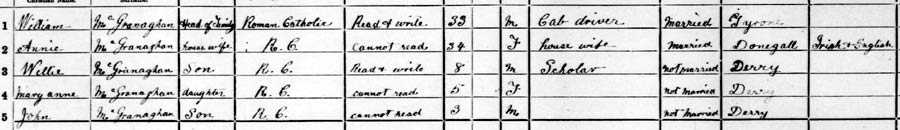 1 William McGranaghan Head of Family Roman Catholic Read & write 33 M Cab driver Married Tyrone
2 Annie McGranaghan house wife R. C. cannot read 34 F house wife Married Donegall Irish & English
3 Willie McGranaghan Son R. C. Read & write 8 M Scholar not married Derry
4 Mary anne McGranaghan daughter R. C. cannot read 5 F not Married Derry
5 John McGranaghan Son R. C. cannot read 3 M not Married Derry